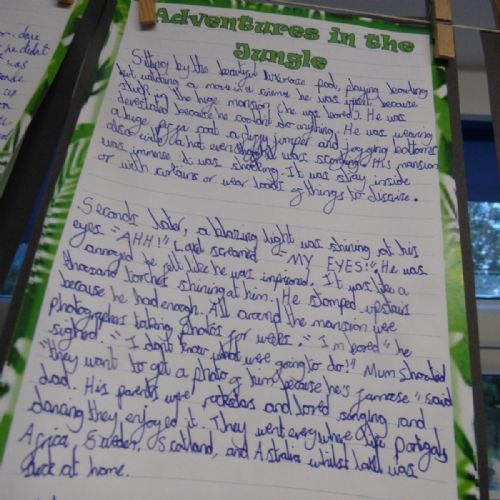 Adventures in the
Jungle
Sitting by the beautiful luxurious pool, playing bowling
but watching a movie in a cinema he was upset because
stuck in the huge mansion (he was bored). He was
devestated because he couldn't do anything. He was wearing
a huge coat a jumper and jogging bottoms
also with a hat even was scorching. His mansion
was immense it was shocking. It was stay inside
or with curtains or wear loads of things to discise.
Seconds later, a blazing light was shining at his
eyes "AHH!" Laki screamed "MY EYES!" He was
annoyed he felt like he was imprisoned. It was like a
thousand torches shining at him. He stomped upstairs
because he had enough. All around the mansion were
photographers taking photos for weeks. "I'm bored" he
sighed. "I don't know what were going to do!" Mum shouted
"they want to get a photo of him because he's famouse" said
dad. His parents were rockstars and loved singing and
dancing they enjoyed it. They went everywhere like Portugals
Africa, Sweden, Scotland, and Astralia whilst Laki was
stuck at home.